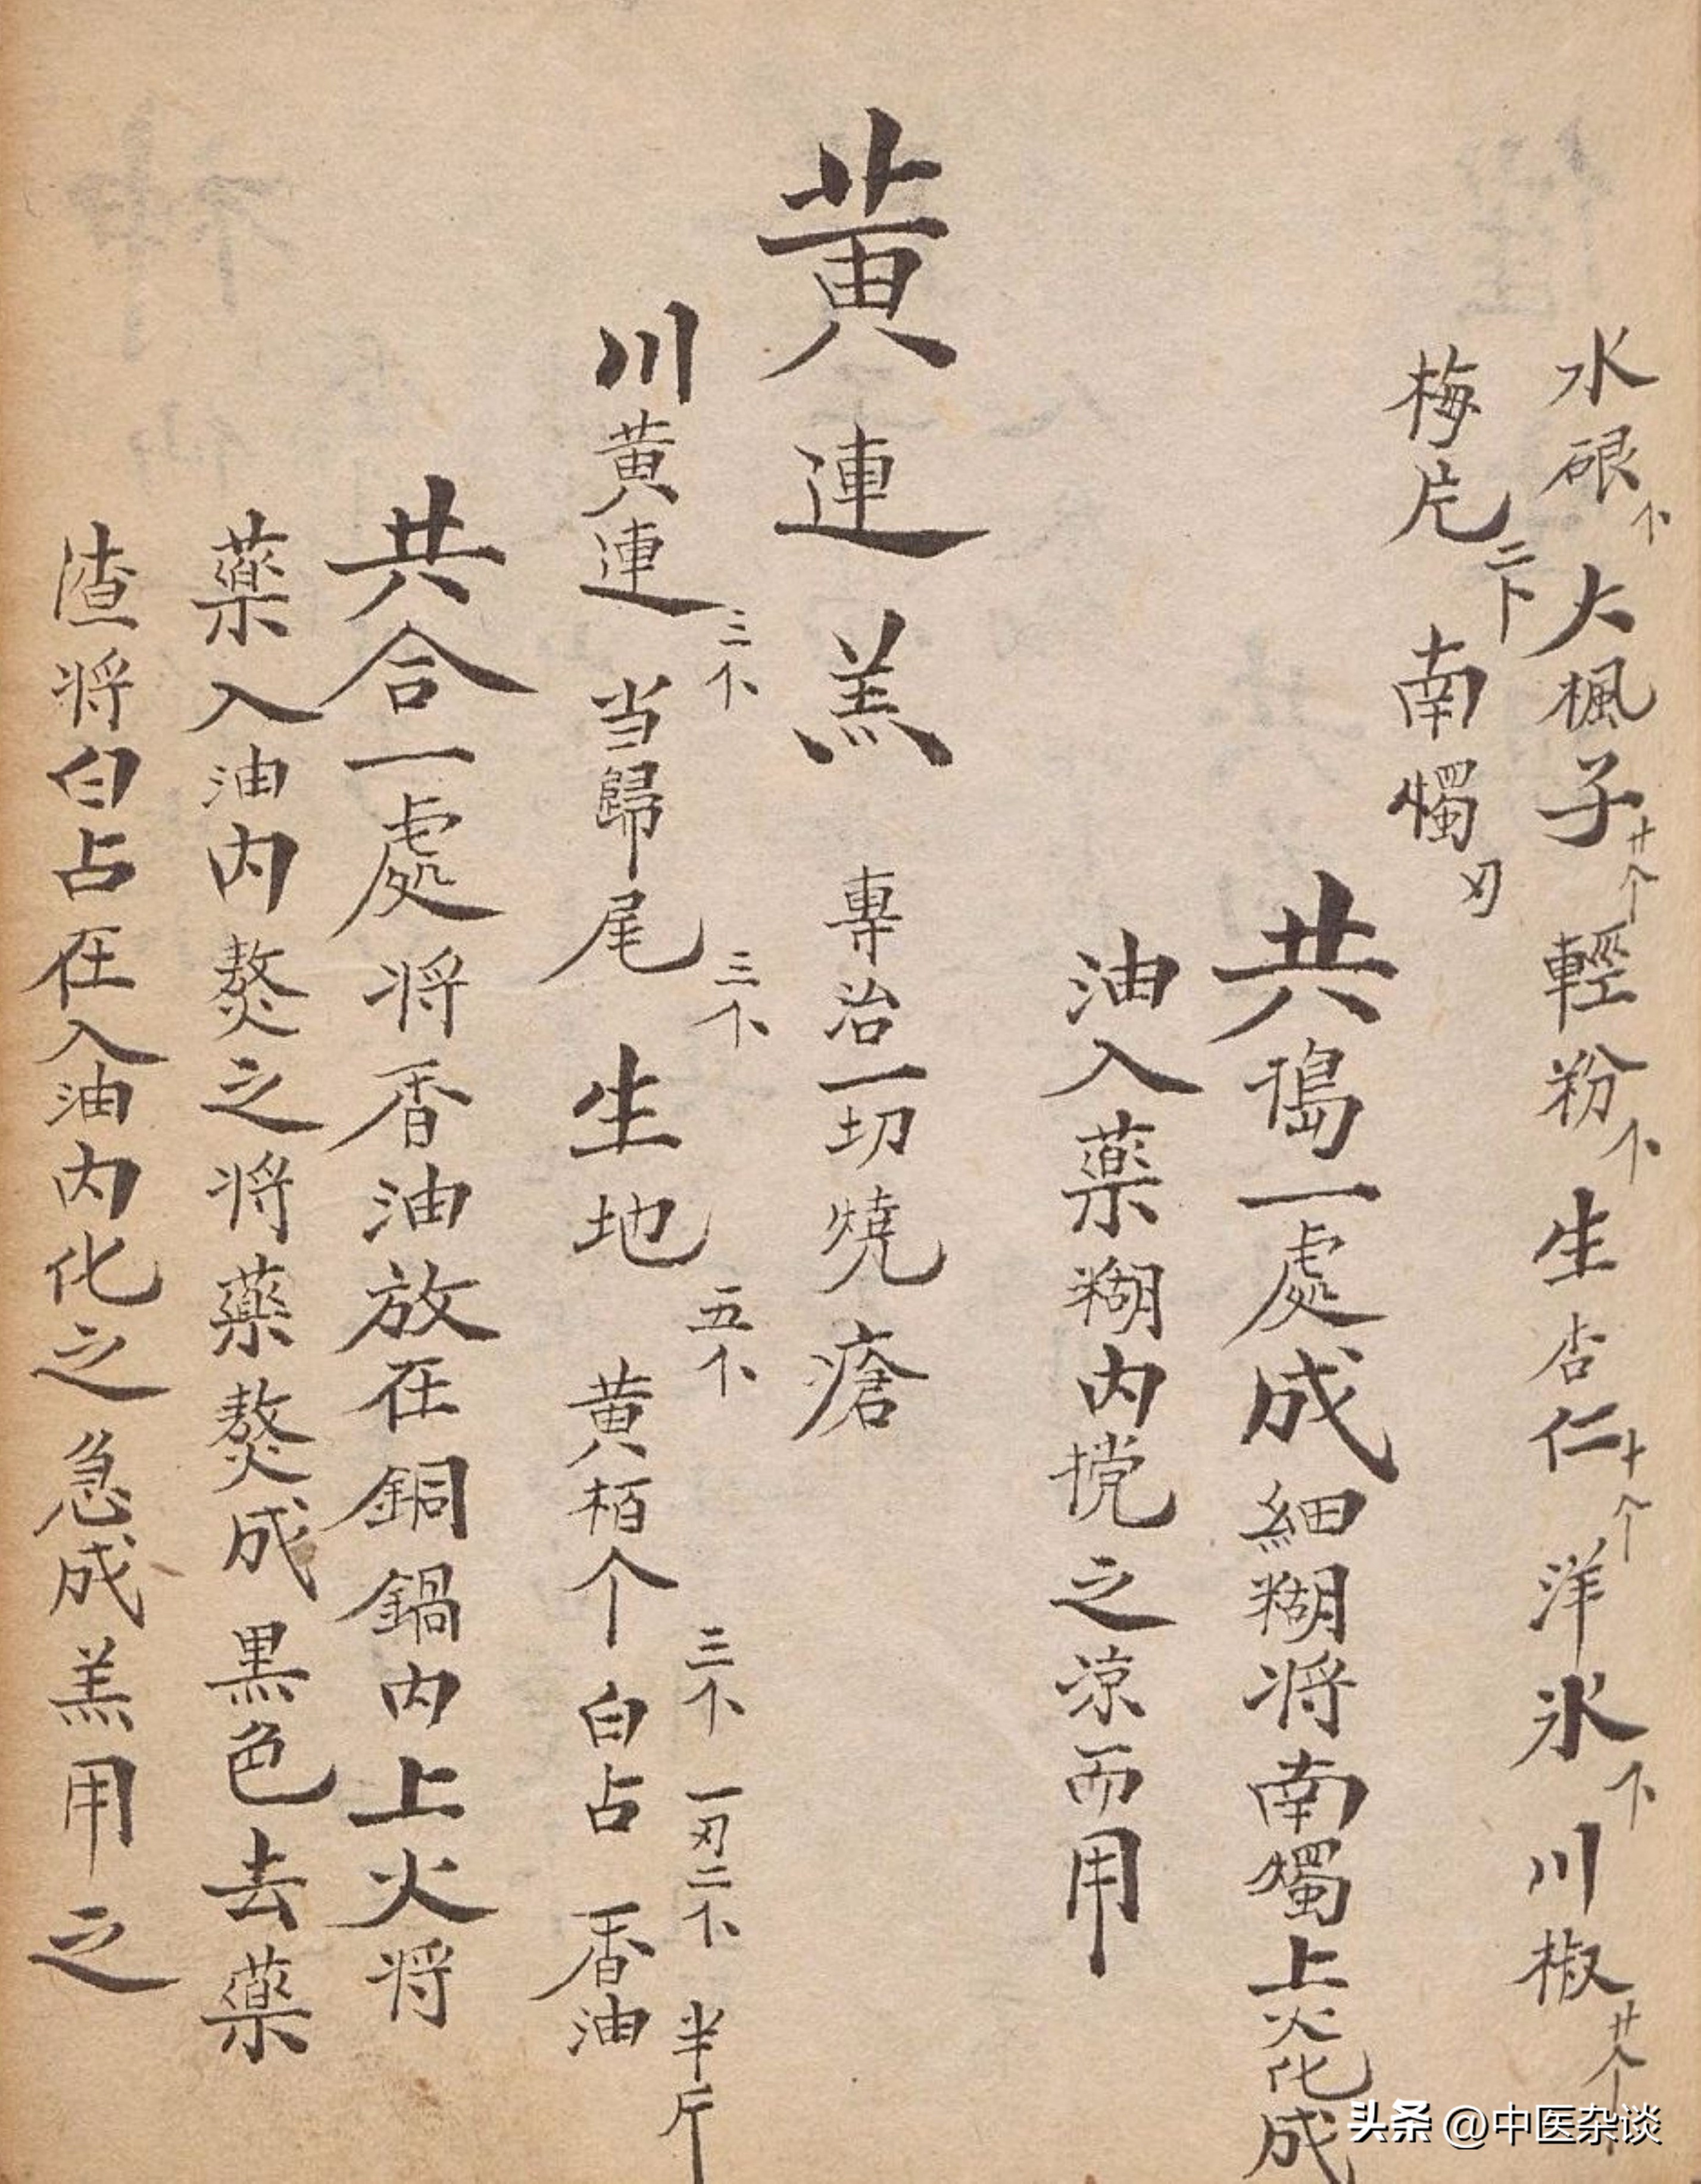 水硍个大楓子廿个輕粉个生杏仁十个洋氷下川椒廿个
梅片二下南燭刃
共搗一處成細糊将南燭上火化成
油入藥糊内搅之凉而用
黄連羔 専治一切燒瘡
川黄連三个当歸尾三个生地五个黄栢个三个白占一刃二个香油半斤
共合一處将香油放在銅鍋内上火将
藥入油内熬之将藥熬成黒色去藥
渣将白占在入油内化之急成羔用之
头条 @中医杂谈